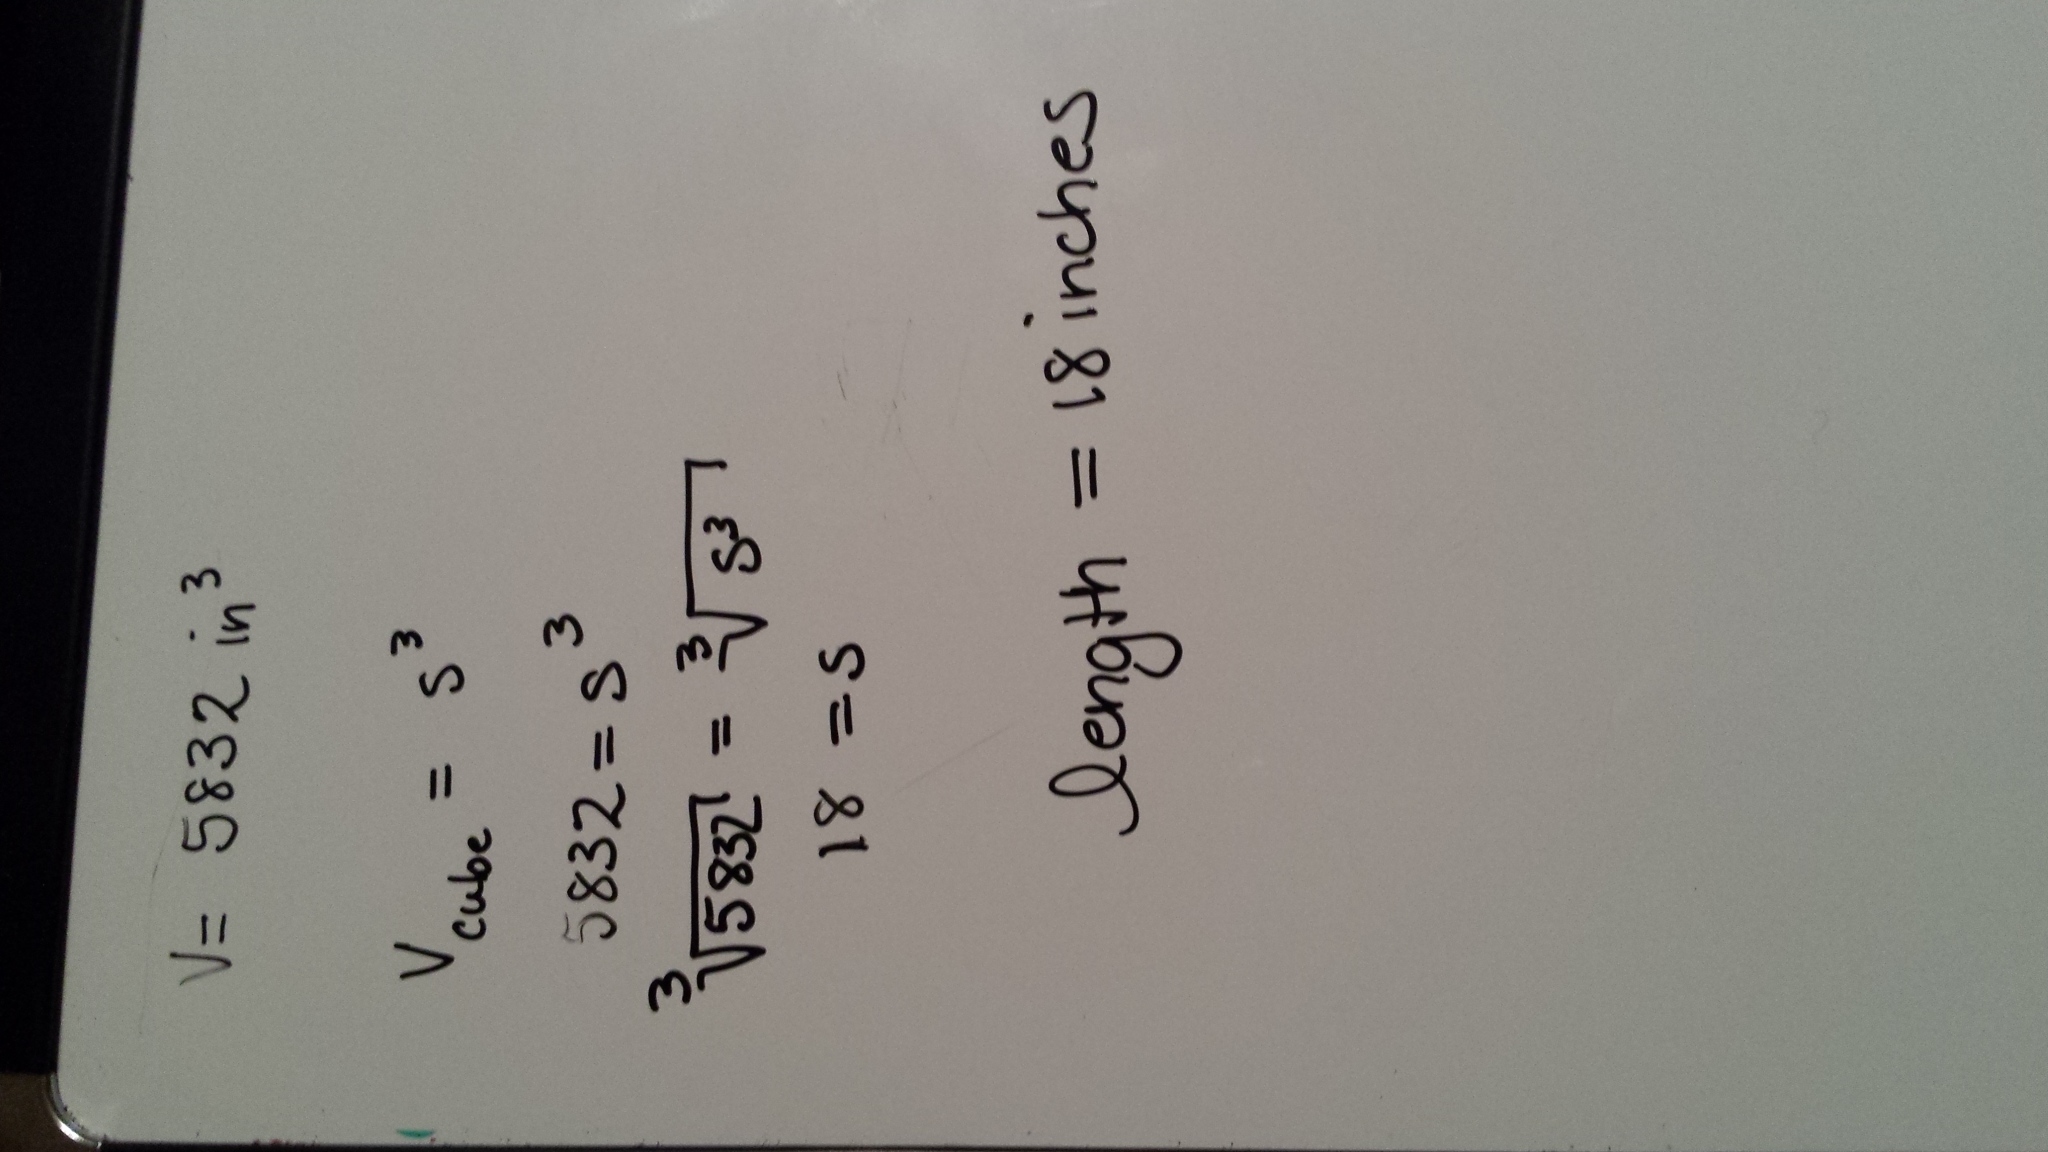 V = 5832 in³
V cube = s³
5832 = s³
³√5832 = ³√s³
18 = s
length = 18 inches